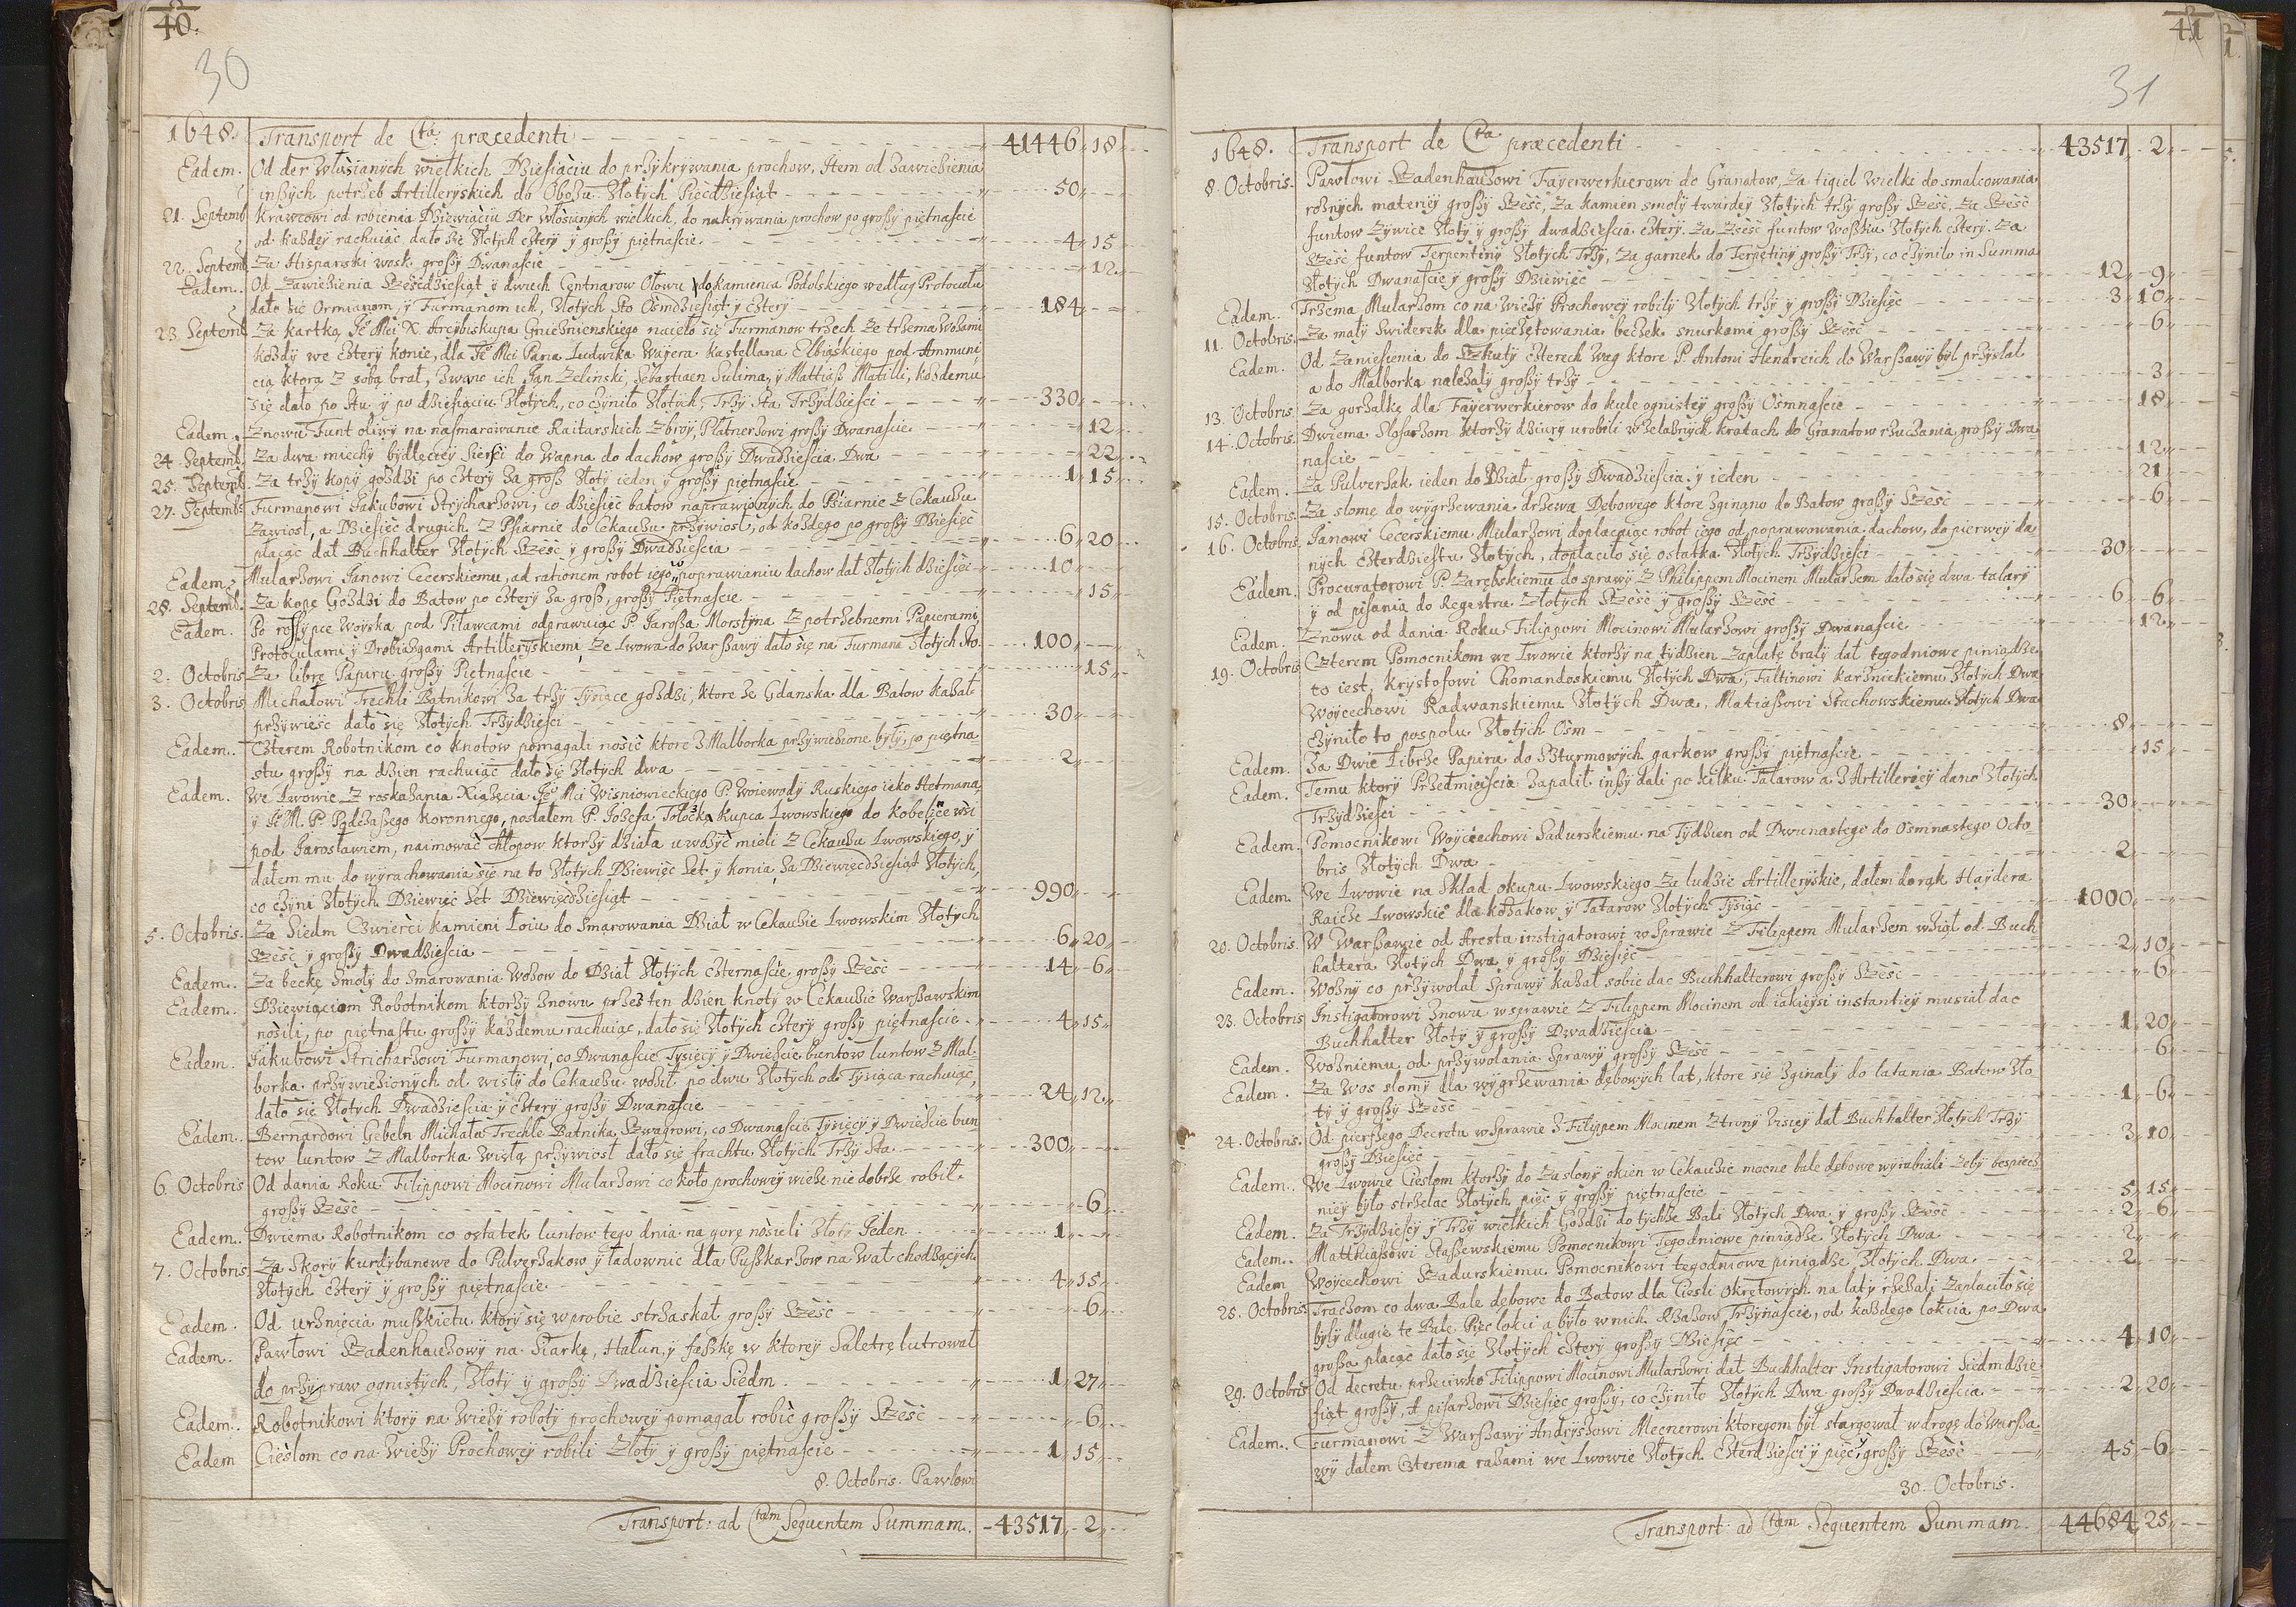 40.
30
1648. Transport de Cta: præcedenti 41446 18
Eadem. Od der Włosianych wielkich Dziesiąciu do przykrywania prochow, Item od zawieszenia
inszych potrzeb Artilleryskich do Obozu Złotych Pięcdziesiąt 50
21. Septemb Krawcowi od robienia Dziewiąciu Der włosianych wielkich, do nakrywania prochow po groszy piętnascie
od kazdey rachuiąc, dało się Złotych cztery y groszy piętnascie 4 15
22. Septemb Za Hispanski wosk groszy Dwanascie 12
Eadem. Od Zawiezienia Szescdziesiąt y dwuch Centnarow Ołowu do kamienia Podolskiego według Protocułu
dało się Ormianom, y Furmanom ich, Złotych Sto Osmdziesiąt y cztery 184
23 Septemb Za kartką Je Mci X. Arcybiskupa Gnieznienskiego naieło się Furmanow trzech ze trzema Wozami
kozdy we cztery konie, dla Je Mci Pana Ludwika Wayera Kastellana Elbiąskiego pod Ammuni
cią ktorą z sobą brał, zwano ich Jan Zelinski, Sebastiaen Sulima, y Mattiasz Matilli, kozdemu
się dało po stu y po dziesiąciu Złotych, co czyniło Złotych, Trzy sta Trzydziesci 330
Eadem. Znowu Funt oliwy na nasmarowanie Raitarskich Zbroy, Płatnerzowi groszy Dwanascie 12
24 Septemb. Za dwa miechy bydlęcey Siersci do Wapna do dachow groszy Dwadziescia Dwa 22
25. Septemb. Za trzy kopy gozdzi po cztery za grosz Złoty ieden y groszy piętnascie 1 15
27. Septemb: Furmanowi Jakubowi Strycharzowi, co dziesięc batow naprawionych do Psiarnie z Cekauzu
zawiosł, a Dziesięc drugich z Psiarnie do Cekauzu przywiosł, od kozdego po groszy Dziesięc
płacąc dał Buchhalter Złotych Szesc y groszy Dwadziescia 6 20
Eadem. Mularzowi Janowi Cecerskiemu, ad rationem robot iego w poprawianiu dachow dał Złotych dziesięc 10
28. Septemb. Za kopę Gozdzi do Batow po cztery za grosz, groszy Piętnascie 15
Eadem. Po rossypce Woyska pod Piławcami odprawuiąc P. Jarosza Morstyna z potrzebnemi Papierami
Protocułami y Drobiazgami Artilleryskiemi, ze Lwowa do Warszawy dało się na Furmana Złotych Sto. 100
2. Octobris Za librę Papiru groszy Piętnascie 15
3. Octobris Michałowi Trechli Batnikowi za trzy Tysiące gozdzi, ktore ze Gdanska dla Batow kazał
przywiesc dało się Złotych Trzydziesci 30
Eadem.. Czterem Robotnikom co knotow pomagali nosic ktore z Malborka przywiezione były, po piętna-
stu groszy na dzien rachuiąc dało się Złotych dwa 2
Eadem. We Lwowie z roskazania Xiązęcia Je Mci Wisniowieckiego P. Woiewody Ruskiego iako Hetmana,
y Je M. P. Podczaszego Koronnego, posłałem P. Jozefa Tołoczka Kupca Lwowskiego do Kobelnice wsi
pod Jarosławiem, naimowac chłopow ktorzy działa uwozyc mieli z Cekauzu Lwowskiego, y
dałem mu do wyrachowania się na to Złotych Dziewięc set y konia za Dziewięcdziesiąt Złotych,
co czyni Złotych Dziewięc set Dziewięcdziesiąt 990
5. Octobris. Za Siedm Czwierci kamieni Łoiu do smarowania Dział w Cekauzie Lwowskim Złotych
Szesc y groszy Dwadziescia 6 20
Eadem.. Za beckę Smoły do smarowania Wozow do Dział Złotych czternascie groszy Szesc 14 6
Eadem.. Dziewiąciom Robotnikom ktorzy znowu przez ten dzien knoty w Cekauzie Warszawskim
nosili, po piętnastu groszy kazdemu rachuiąc, dało się Złotych cztery groszy piętnascie 4 15
Eadem. Jakubowi Stricharzowi Furmanowi, co Dwanascie Tysięcy y Dwiescie buntow luntow z Mal-
borka przywiezionych od wisły do Cekauzu woził po dwu Złotych od Tysiąca rachuiąc,
dało się Złotych Dwadziescia y cztery groszy Dwanascie 24 12
Eadem.. Bernardowi Gebeln Michała Trechle Batnika Szwagrowi, co Dwanascie Tysięcy y Dwiescie bun
tow luntow z Malborka Wisłą przywiosł dało się frachtu Złotych Trzy Sta 300
6 Octobris Od dania Roku Filippowi Mocinowi Mularzowi co koło prochowey wieze nie dobrze robił.
groszy Szesc 6
Eadem.. Dwiema Robotnikom co ostatek luntow tego dnia na gorę nosieli Złoty Jeden 1
7. Octobris Za Skory kurdybanowe do Pulverzakow y ładownic dla Puszkarzow na wał chodzących
Złotych cztery y groszy piętnascie 4 15
Eadem. Od urznięcia muszkietu ktory się w probie strzaskał groszy Szesc 6
Eadem. Pawłowi Szadenhauzowy na Siarkę, Hałun, y faskę w ktorey Saletrę lutrował
do przypraw ognistych, Złoty y groszy Dwadziescia Siedm 1 27
Eadem.. Robotnikowi ktory na wiezy roboty prochowey pomagał robic groszy Szesc 6
Eadem Cieslom co na Wiezy Prochowey robili Złoty y groszy piętnascie 1 15
8. Octobris. Pawłowi
Transport: ad Ctam Sequentem Summam. 43517 2
41
31
1648. Transport de Cta præcedenti 43517 2
8. Octobris. Pawłowi Szadenhauzowi Fayerwerkierowi do Granatow, za tigiel Wielki do smalcowania
roznych materiey groszy Szesc, za kamien smoły twardey Złotych trzy groszy Szesc, za Szesc
funtow Zywice Złoty y groszy dwadziescia cztery. za Szesc funtow woszku Złotych cztery. Za
Szesc funtow Terpentiny Złotych Trzy, Za garnek do Terpętiny groszy Trzy, co czyniło in Summa
Złotych Dwanascie y groszy Dziewięc 12 9
Eadem. Trzema Mularzom co na wiezy Prochowey robily Złotych trzy y groszy Dziesięc 3 10
11. Octobris. Za mały Swiderek dla piechętowania beczek snurkami groszy Szesc 6
Eadem. Od zaniesienia do Szkuty czterech Wag ktore P. Antoni Hendreich do Warszawy był przysłał
a do Malborka nalezały groszy trzy 3
13. Octobris. Za gorzałkę dla Fayerwerkierow do kule ognistey groszy Osmnascie 18
14. Octobris. Dwiema Slosarzom ktorzy dziury urobili w zelaznych kratach do Granatow rzucania groszy Dwa-
nascie 12
Eadem. Za Pulverzak ieden do Dział groszy Dwadziescia y ieden 21
15. Octobris. Za słomę do wygrzewania drzewa Dębowego ktore zginano do Batow groszy Szesc 6
16. Octobris. Janowi Cecerskiemu Mularzowi, dopłacaiąc robot iego od poprawowania dachow, do pierwey da-
nych czterdziestu Złotych, dopłaciło się ostatka Złotych Trzydziesci 30
Eadem. Procuratorowi P. Zarębskiemu do sprawy z Philippem Mocinem Mularzem dało się dwa talary
y od pisania do Regestru Złotych Szesc y groszy Szesc 6 6
Eadem. Znowu od dania Roku Filippowi Mocinowi Mularzowi groszy Dwanascie 12
19. Octobris Czterem Pomocnikom we Lwowie ktorzy na tydzien zapłatę brały dał tegodniowe piniądze
to iest, Krystofowi Chomandoskiemu Złotych Dwa, Faltinowi Karznickiemu Złotych Dwa
Woycechowi Radwanskiemu Złotych Dwa, Matiaszowi Stachowskiemu Złotych Dwa
czyniło to pospołu Złotych Osm 8
Eadem. Za Dwie Librze Papiru do Szturmowych garkow groszy piętnascie 15
Eadem. Temu ktory Przedmiescia zapalił inszy dali po kilku Talarow a z Artilleriey dano Złotych
Trzydziesci 30
Eadem. Pomocnikowi Woyciechowi Sadurskiemu na Tydzien od Dwunastego do Osmnastego Octo-
bris Złotych Dwa 2
Eadem. We Lwowie na Skład okupu Lwowskiego za ludzie Artilleryskie, dałem do rąk Haydera
Raicze Lwowskie dla Kozakow y Tatarow Złotych Tysiąc 1000
20. Octobris. W Warszawie od Aresta instigatorowi w sprawie z Filippem Mularzem wziął od Buch
haltera Złotych Dwa y groszy Dziesięc 2 10
Eadem. Wozny co przywołał sprawy kazał sobie dac Buchhalterowi groszy Szesc 6
23. Octobris Instigatorowi znowu w sprawie z Filippem Mocinem od iakieysi instantiey musiał dac
Buchhalter Złoty y groszy Dwadziescia 1 20
Eadem. Wozniemu od przywołania Sprawy groszy Szesc 6
Eadem. Za Wos słomy dla wygrzewania dębowych lat, ktore się zginały do łatania Batow Zło
ty y groszy Szesc 1 6
24. Octobris. Od pierszego Decretu w Sprawie z Filippem Mocinem z trony Visiey dał Buchhalter Złotych Trzy
groszy Dziesięc 3 10
Eadem.. We Lwowie Cieslom ktorzy do zasłony okien w Cekauzie mocne bale dębowe wyrabiali zeby bespiecz
niey było strzelac Złotych pięc y groszy piętnascie 5 15
Eadem. Za Trzydziescy y Trzy wielkich Gozdzi do tychze Bali Złotych Dwa y groszy Szesc 2 6
Eadem.. Matthiaszowi Staszewskiemu Pomocnikowi Tegodniowe piniądze Złotych Dwa 2
Eadem Woycechowi Szadurskiemu Pomocnikowi tegodniowe piniądze Złotych Dwa 2
25. Octobris. Trachom co dwa Bale dębowe do Batow dla Ciesli okrętowych na laty rzezali zapłaciło się
były długie te Bale Pięc łokci a było w nich Rzazow Trzynascie, od kazdego łokcia po Dwa
grosza płacąc dało się Złotych cztery groszy Dziesięc 4 10
29. Octobris Od decretu przeciwko Filippowi Mocinowi Mularzowi dał Buchhalter Instigatorowi Siedmdzie-
siąt groszy, A pisarzowi Dziesięc groszy, co czyniło Złotych Dwa groszy Dwadziescia 2 20
Eadem.. Furmanowi z Warszawy Andryszowi Mecnerowi ktoregom był stargował w drogę do Warsza-
wy dałem Czterema razami we Lwowie Złotych Czterdziesci y pięc, y groszy Szesc 45 6
30. Octobris.
Transport: ad Ctam Sequentem Summam. 44684 25